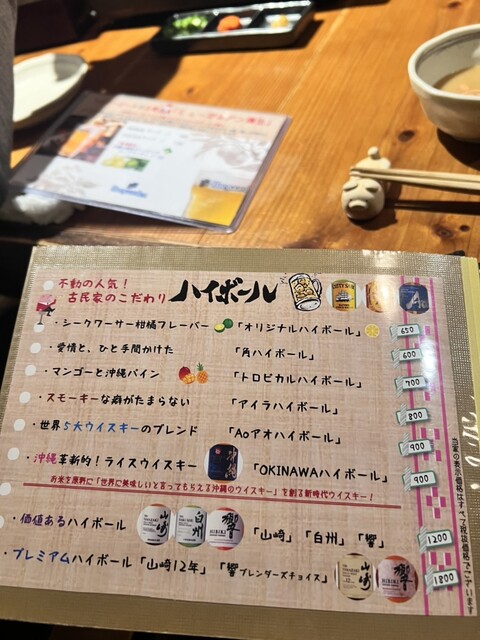 不動の人気！
古民家のこだわり ハイボール
・シークワーサー柑橘フレーバー 「オリジナルハイボール」 650
・愛情と、ひと手間かけた 「角ハイボール」 600
・マンゴーと沖縄パイン 「トロピカルハイボール」 700
・スモーキーな癖がたまらない 「アイラハイボール」 800
・世界5大ウイスキーのブレンド 「Aoアオハイボール」 900
・沖縄革新的！ライスウイスキー 「OKINAWAハイボール」 900
お米を原料に「世界に美味しいと言ってもらえる沖縄のウイスキー」を創る新時代ウイスキー！
・価値あるハイボール 山崎 白州 響 「山崎」「白州」「響」 1200
・プレミアムハイボール「山崎12年」「響ブレンダーズチョイス」 山崎 響 1800
当店の表示価格はすべて税抜価格でございます